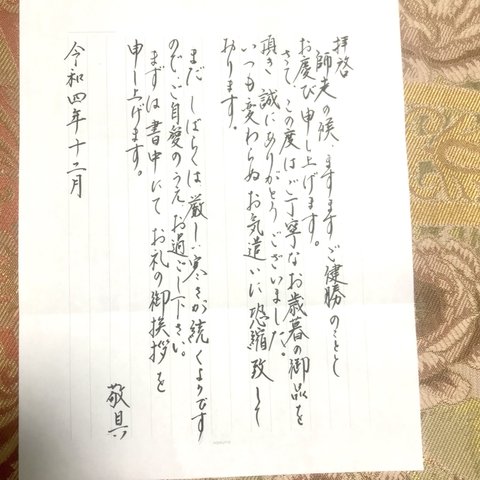 拝啓
師走の候、ますますご健勝のこととと
お慶び申し上げます。
さて、この度はご丁寧なお歳暮の御品を
頂き誠にありがとうございました。
いつも変わらぬお気遣いに恐縮致して
おります。
まだしばらくは厳しい寒さが続くようです
のでご自愛のうえお過ごし下さい。
まずは書中にてお礼の御挨拶を
申し上げます。
敬具
令和四年十二月